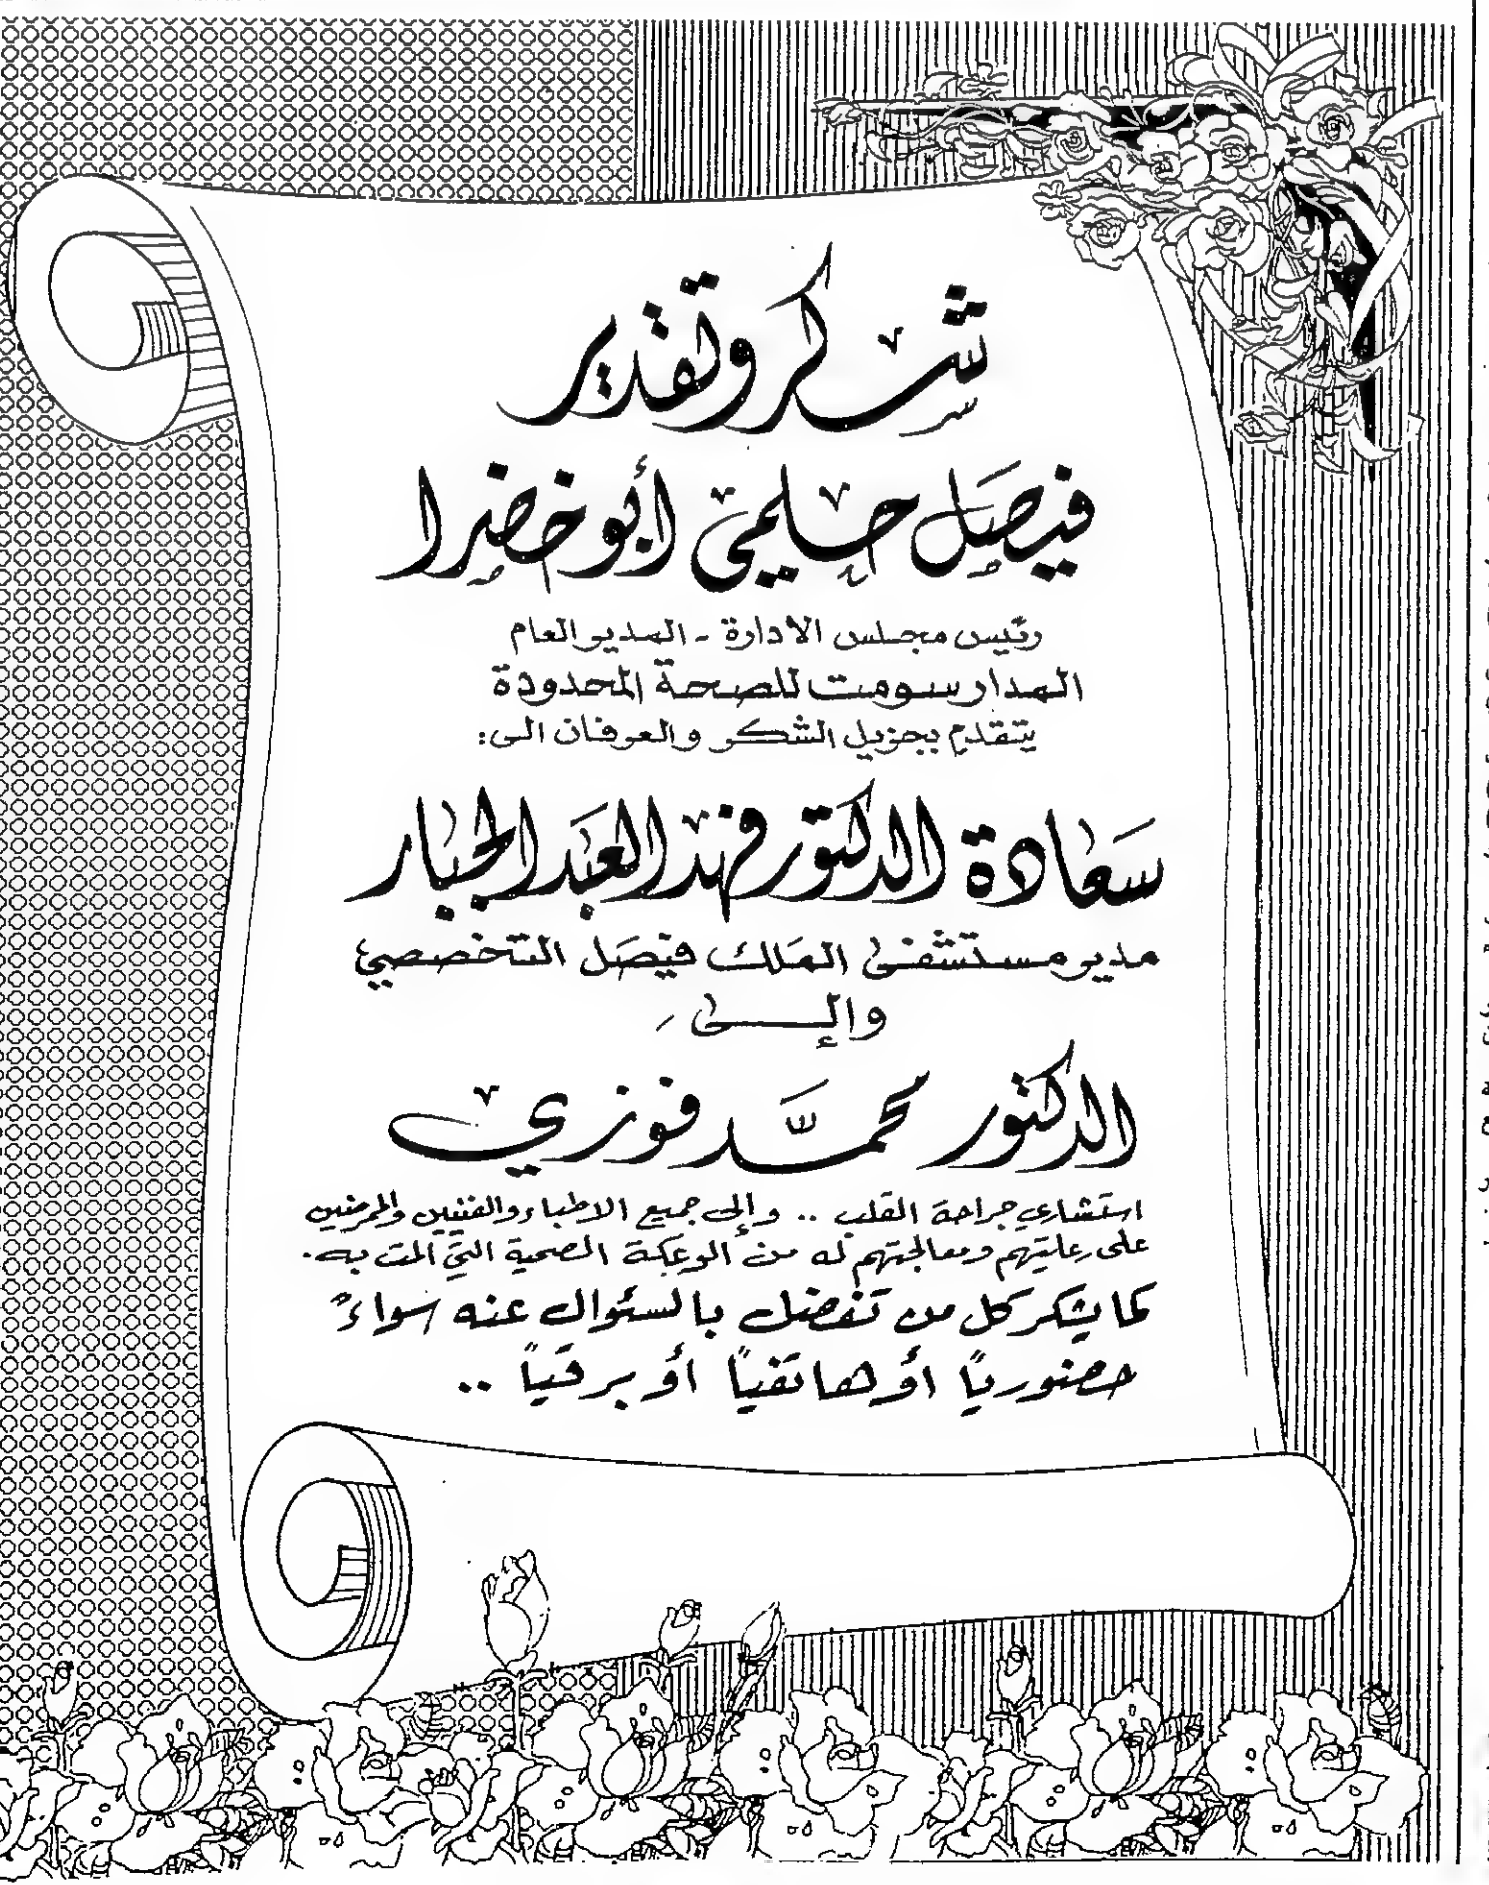 شكر وتقدير
فيصل حلمي أبو خضرا
رئيس مجلس الادارة - المدير العام
المدار سومت للصحة المحدودة
يتقدم بجزيل الشكر والعرفان الى:
سعادة الدكتور فهد العبد الجبار
مدير مستشفى الملك فيصل التخصصي
وإلى
الدكتور محمد فوزي
استشاري جراحة القلب .. وإلى جميع الاطباء والفنيين والممرضين
على رعايتهم ومعالجتهم له من الوعكة الصحية التي ألمت به.
كما يشكر كل من تفضل بالسئوال عنه سواءً
حضورياً أو هاتفياً أو برقياً ..